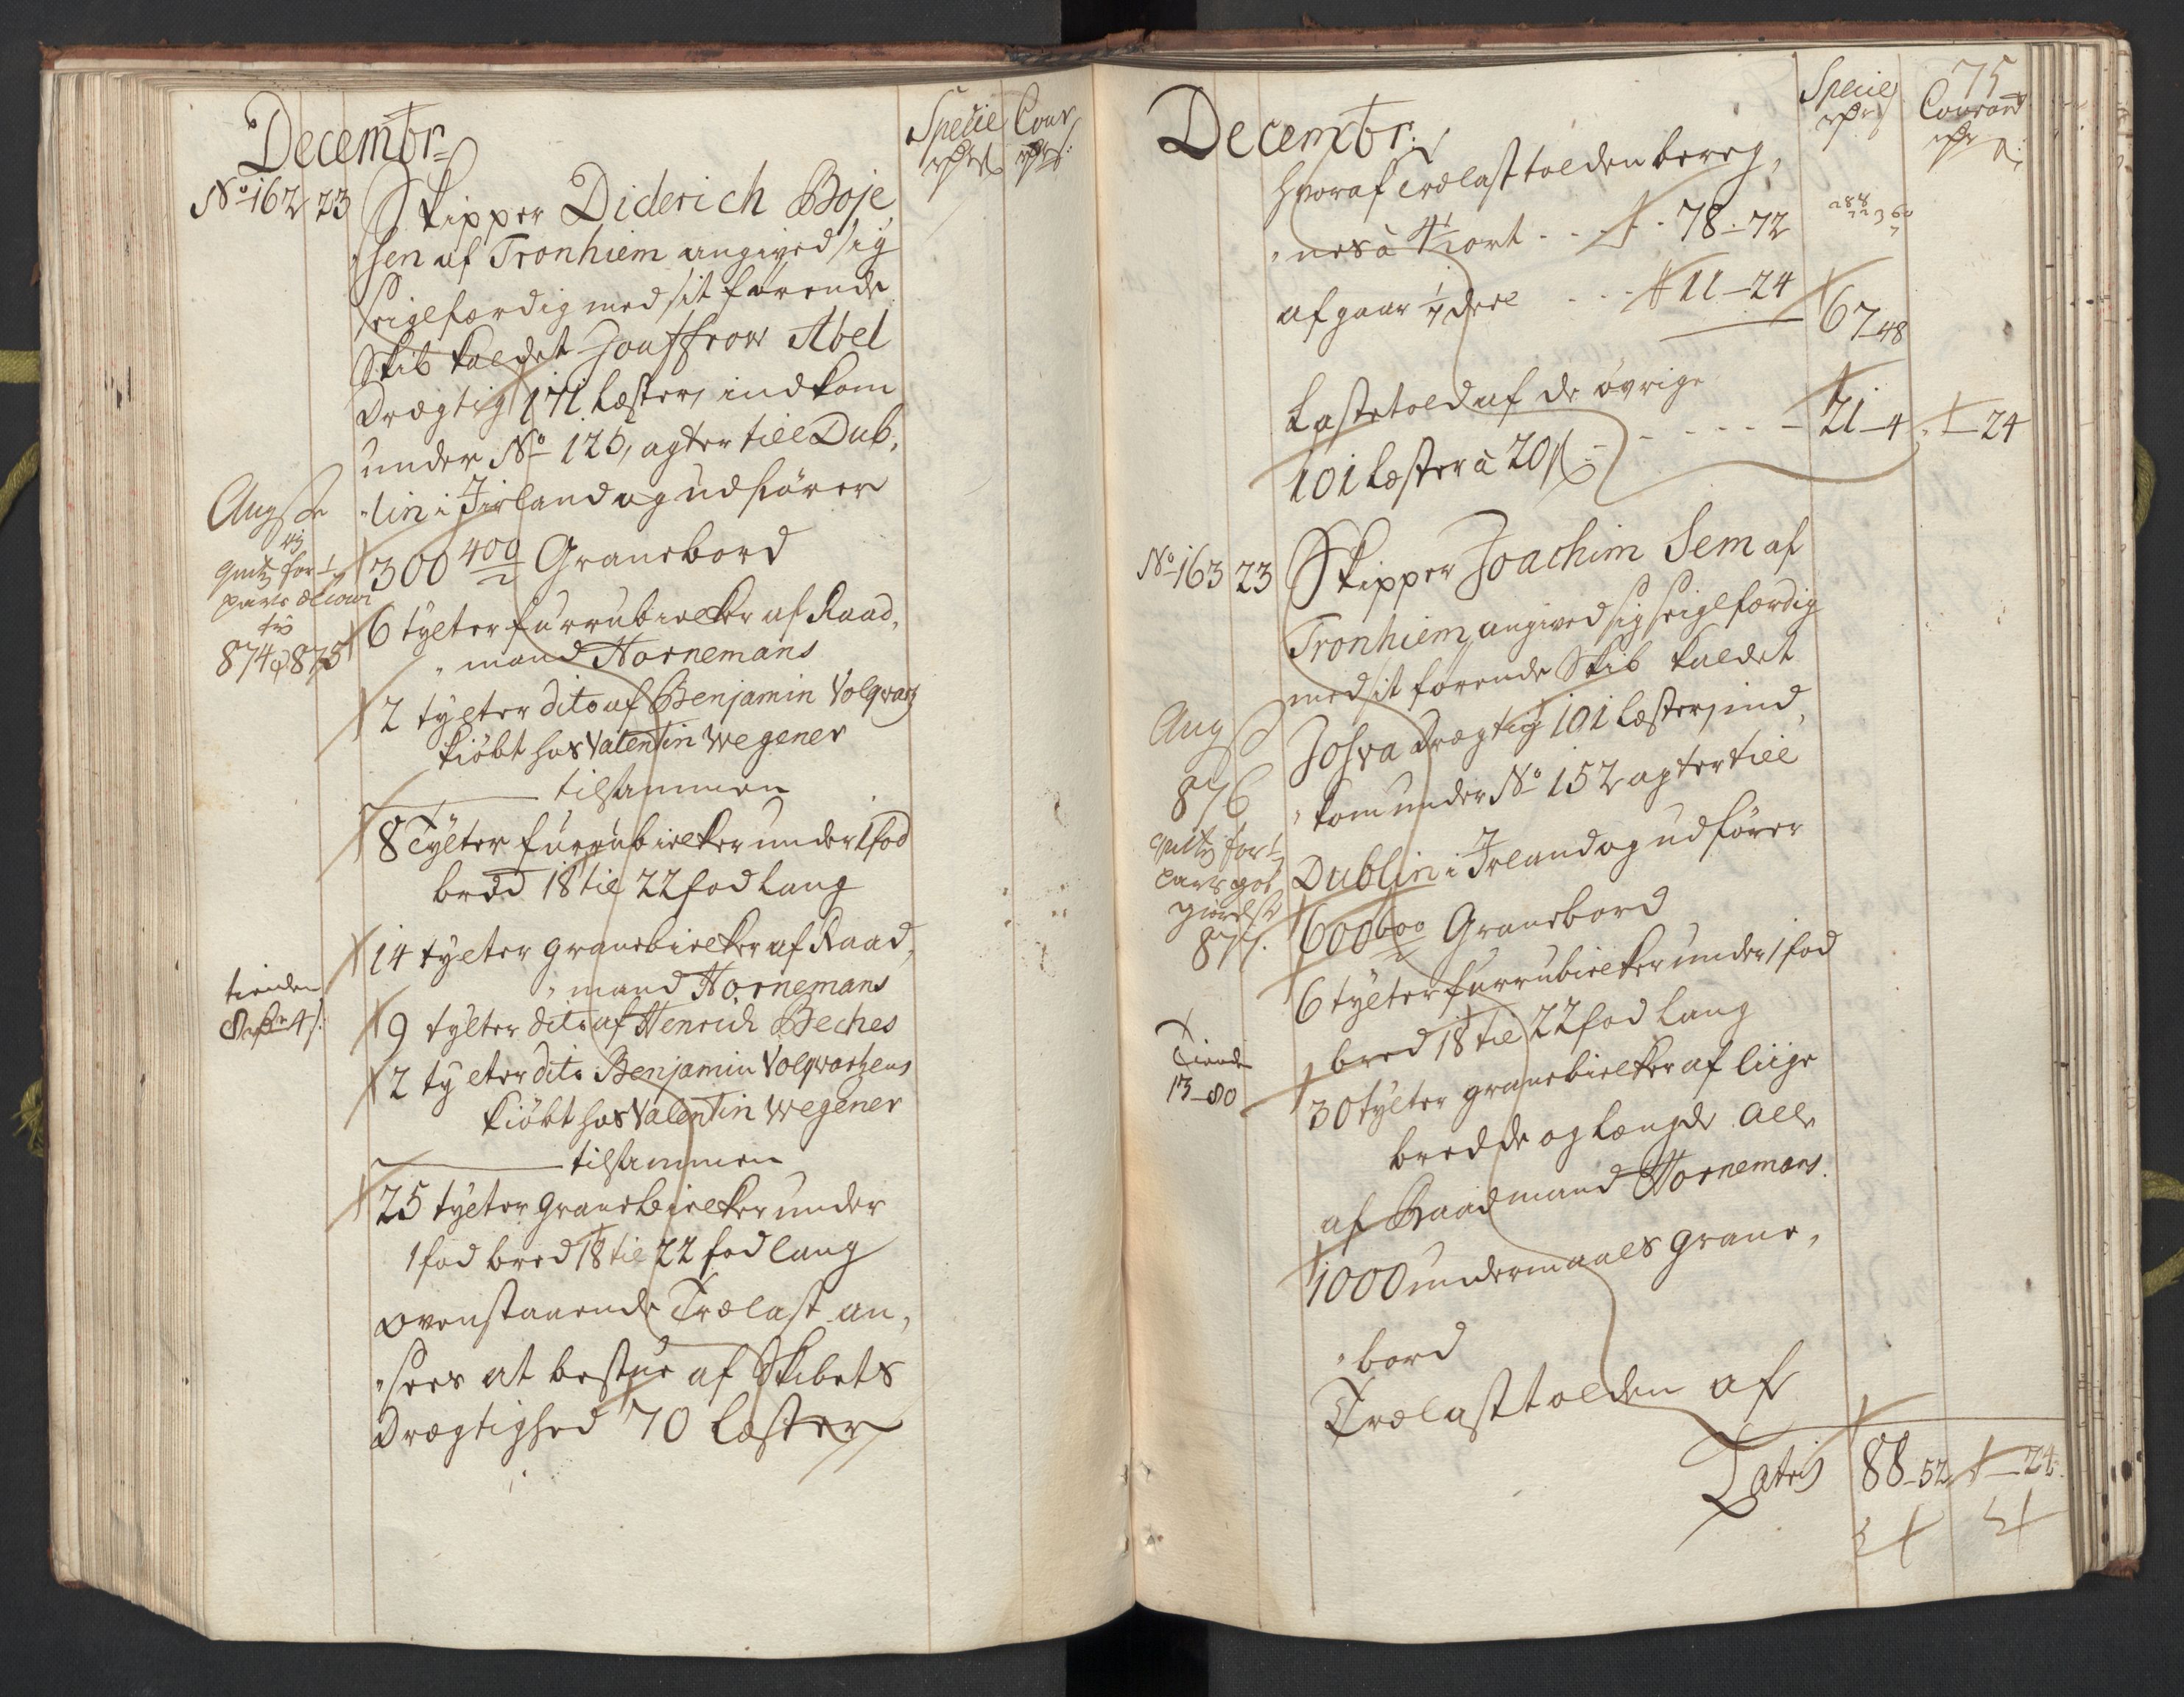 Decembr
Specie Cour
No 162 23 Skipper Diderich Boje
sen af Tronhiem angived sig
seiglfærdig med sit førende
Skib kaldet Jouffrow Abel
Drægtig 171 Læster, indkom
under No 126, agter till Dub,
lin i Jrland og udfører
300 400/2 Granebord
6 tylter furrubielker af Raad,
mand Hornemans
2 tylter dito af Benjamin Volqvartz
kiöbt hos Valentin Wegener
tilsammen
8 Tylter furrubielker under 1 fod
bred 18 til 22 fod lang
14 tylter granebielker af Raad,
mand Hornemans
9 tylter dito af Henrich Beches
2 tylter dito Benjamin Volqvartzens
kiöbt hos Valentin Wegener
tilsammen
25 tylter Granebielker under
1 fod bred 18 til 22 fod lang
ovenstaaende Trælast an,
sees at bestaae af Skibets
Drægtighed 70 Læster
874 & 875
tienden
8 rdr 4 s.
75
Decembr:
Specie Courant
hvoraf Trælasttolden bereg,
nes à 4 1/2 ort - - - 78 - 72
afgaar 1/7 deel - - - 11 - 24 67 - 48
Lastetold af de øvrige
101 Læster à 20 s - - - - - 21 - 4 - 24
No 163 23 Skipper Joachim Sem af
Tronhiem, angived sig seiglfærdig
med sit førende Skib kaldet
Josva Drægtig 101 Læster, ind,
kom under No 152 agter till
Dublin i Jrland og udfører
600 600/2 Granebord
6 tylter furrubielker under 1 fod
bred 18 til 22 fod lang
30 tylter granebielker af liige
bredde og Længde Alle
af Raadmand Hornemans.
1000 undermaals Grane,
bord
Trælasttolden af
Latris 88 - 52 - 24
876
877.
Tiende
13 - 80